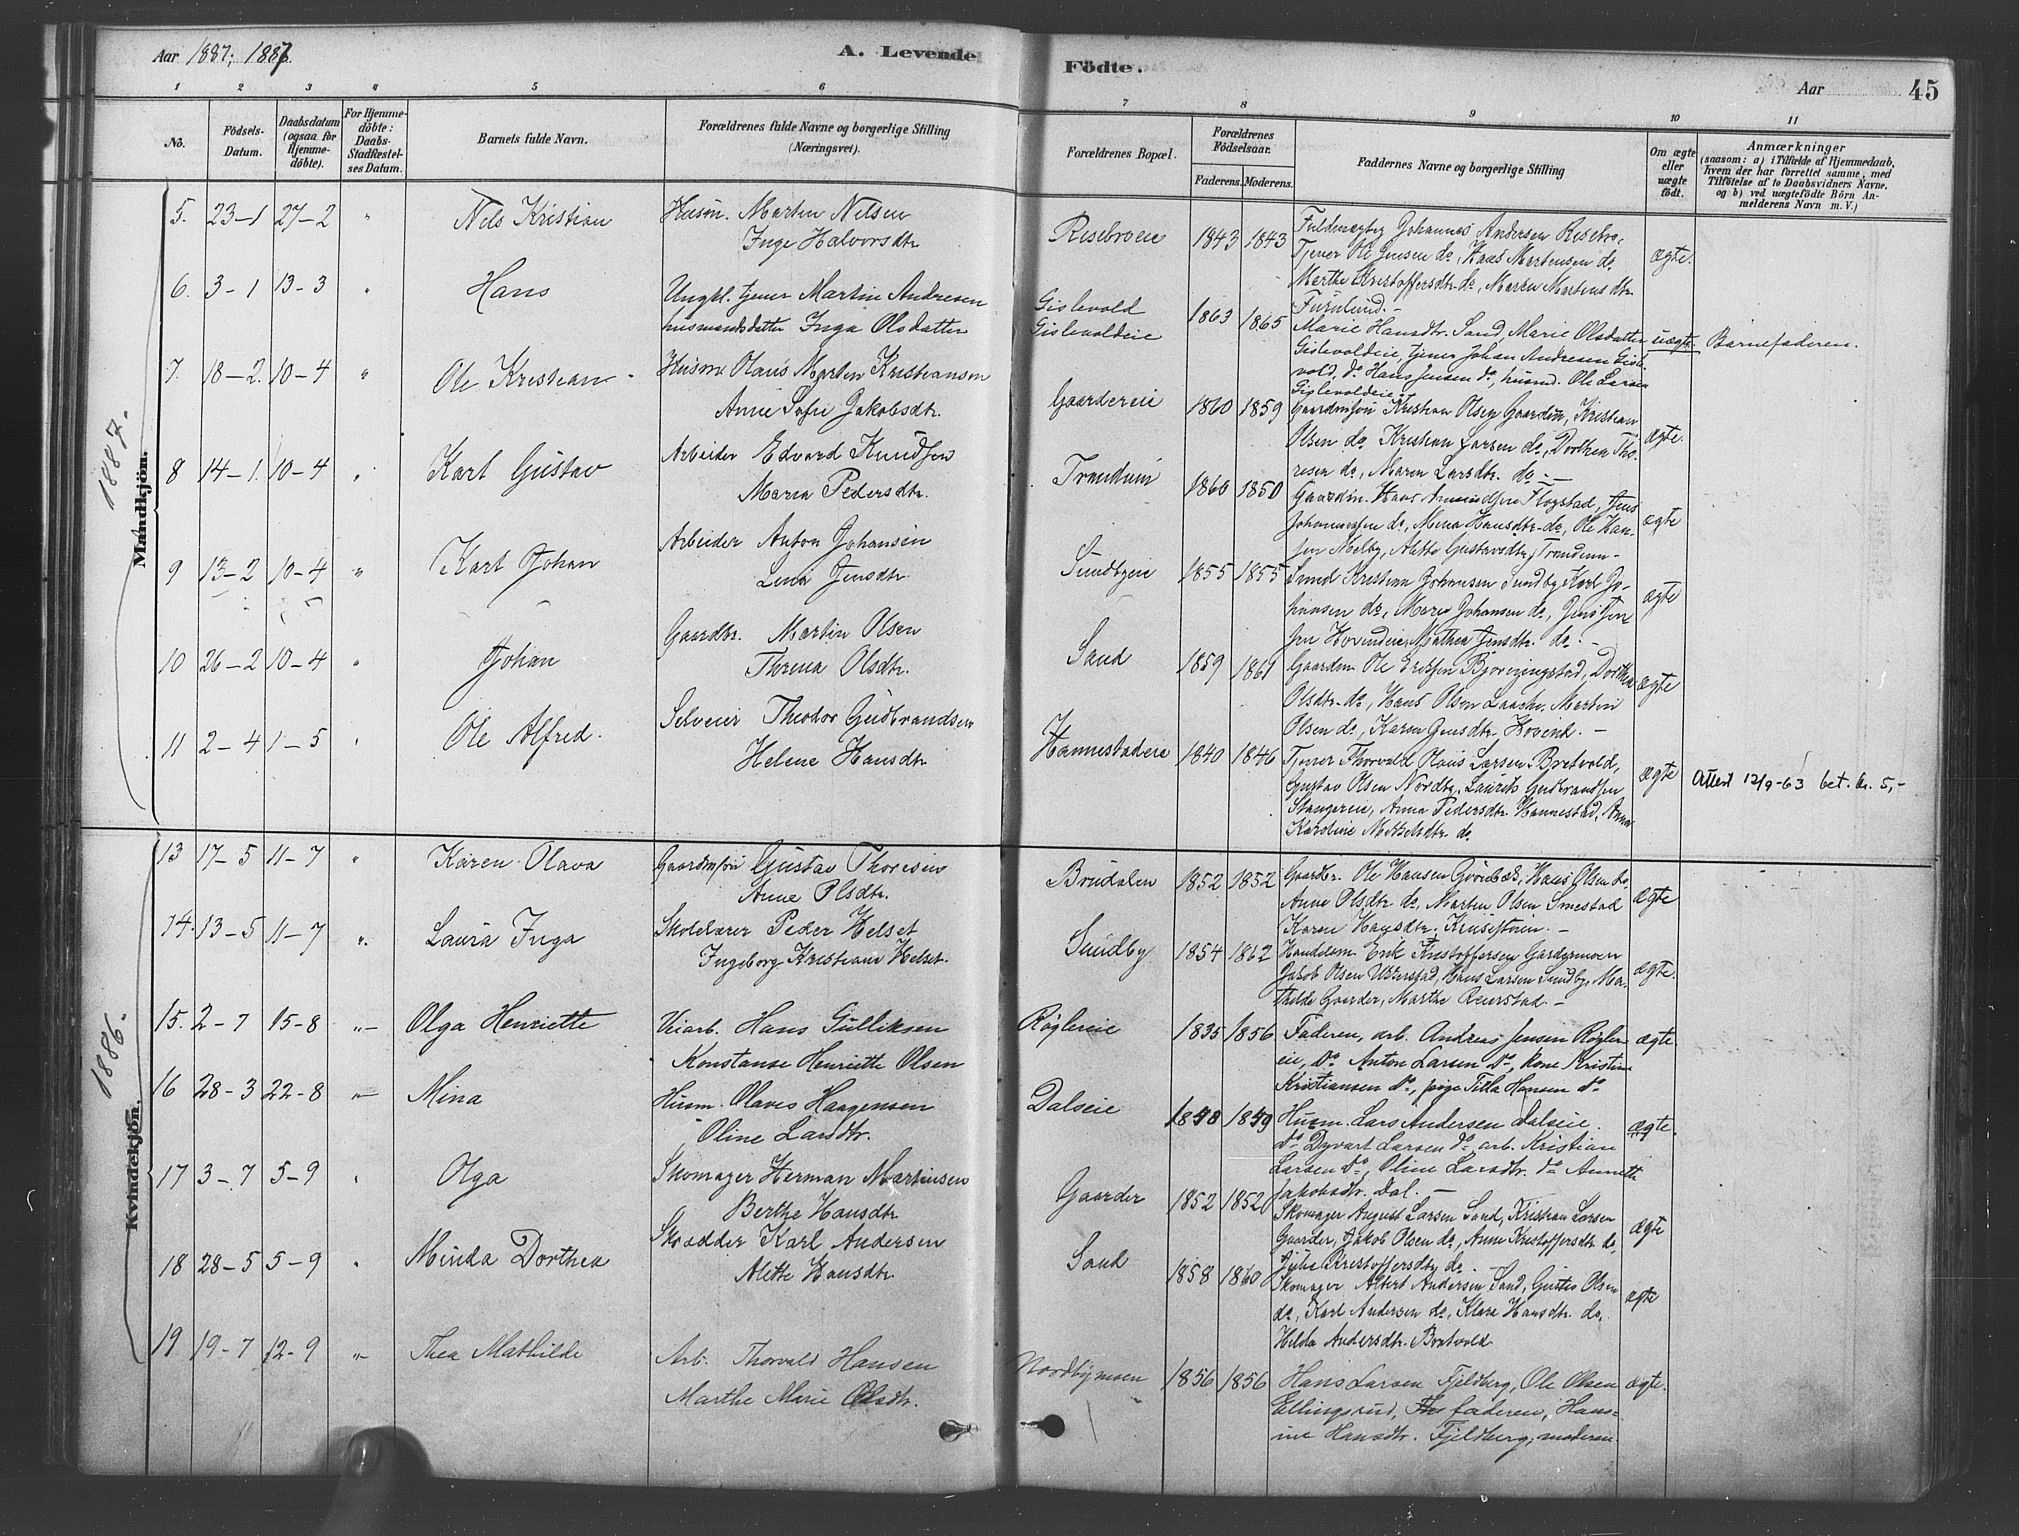 Aar 1887; 1887.
A. Levende Födte.
Aar
45
1 2 3 4 5 6 7 8 9 10 11
No.
Födsels-Datum.
Daabsdatum (ogsaa for Hjemme-döbte).
For Hjemme-döbte: Daabs-Stadfæstel-ses Datum.
Barnets fulde Navn.
Forældrenes fulde Navne og borgerlige Stilling (Næringsvei).
Forældrenes Bopæl.
Forældrenes Födselsaar.
Faderens. Moderens.
Faddernes Navne og borgerlige Stilling
Om ægte eller uægte födt.
Anmærkninger
(saasom: a) i Tilfælde af Hjemmedaab, hvem der har forrettet samme, med Tilföielse af to Daabsvidners Navne, og b) ved uægtefödte Börn An-melderens Navn m. V.)
1887.
Mandkjön.
5. 23-1 27-2 " Nils Kristian
Husm. Marten Nilsen
Inge Halvorsdtr
Risebroeie 1843 1843
Johannes Andersen Risebro,
Tjener Ole Jensen do, Hans Martensen do
Marthe Kristoffersdtr do, Maren Martensdtr
Furulund.-
ægte.
6. 3-1 13-3 " Hans
Ungkl. tjener Martin Andresen
husmandsdatter Inga Olsdatter
Gislevold
Gislevoldeie
1863 1865
Marie Hansdtr. Sand, Marie Olsdatter
Gislevoldeie, tjener Johan Andresen Gisle-
vold, do Hans Jensen do, husmd. Ole Larsen
Gislevoldeie.
uægte.
Barnefaderen.
7. 18-2. 10-4 " Ole Kristian
Husm Olaus Marten Kristiansen
Anne Sofie Jakobsdtr.
Gaardereie 1860 1859
Kristian Olsen Gaarder, Kristian
Olsen do, Kristian Larsen do, Dorthea Tho-
resen do, Maren Larsdtr. do -
ægte.
8 14-1. 10-4 " Karl Gustav
Arbeider Edvard Knudsen
Maren Pedersdtr.
Trandum 1860 1850
Gaardm. Hans Amundsen Flogstad, Jens
Johannessen do, Mena Hansdtr do, Ole Han-
sen Melby, Alette Gustavsdtr, Trandum -
ægte
9 13-2 10-4 " Karl Johan
Arbeider Anton Johansen
Lina Jensdtr.
Sundbyeie 1855 1855
Smed Kristian Johansen Sundby, Karl Jo-
hansen do, Maren Johansen do, Jens
Mathea Jensdtr. do. -
ægte
10 26-2 10-4 " Johan
Gaardbr. Martin Olsen
Thrina Olsdtr.
Sand 1859 1861
Gaardm. Ole Eriksen Dorthea
Olsdtr. do, Hans Olsen Laache, Martin
Olsen do, Karen Jensdtr. Hovind. -
ægte
11 2-4 1-5 " Ole Alfred.
Selveier Theodor Gudbrandsen
Helene Hansdtr
Hannestadeie 1840 1846
Tjener Thorvald Olaus Larsen Bretvold,
Gustav Olsen Nordby, Laurits Gudbrandsen
Anna Pedersdtr. Hannestad, Anna
Karoline do
ægte
Attest 12/9-63 bet. kr. 5,-
1886.
Kvindekjön.
13 17-5 11-7 " Karen Olava
Gaardmson Gustav Thoresen
Anne Olsdtr.
Brudalen 1852 1852
Gaardbr. Ole Hansen Hans Olsen do,
Anne Olsdtr. do, Martin Olsen Smestad
Karen Hansdtr.
ægte
14. 13-5 11-7 ". Laura Inga
Skolelærer Peder Helset
Ingeborg Kristiane Helset.
Sundby 1854 1862
Handelsm. Erik Kristoffersen Gardermoen
Jakob Olsen Hans Larsen Sundby, Ma-
thilde Gaarder, Marthe -
ægte.
15. 2-7 15-8 "- Olga Henriette
Veiarb. Hans Gulliksen
Konstanse Henriette Olsen
Røglereie 1835 1856
Faderen, arb. Andreas Jensen Røgler-
eie, do Anton Larsen do, kone Kristine
Kristiansen do, pige Tilla Hansen do
ægte.
16 28-3 22-8 "- Mina
Husm. Olaves Haagensen
Oline Larsdtr.
Dalseie 1848 1849
Husm. Lars Andersen Dalseie.
do Dyvart Larsen do arb. Kristian
Larsen do, Oline Larsdtr. do Annette
Jakobsdtr. Dal. -
ægte.
17 3-7 5-9 " Olga
Skomager Herman Martinsen
Berthe Hansdtr
Gaarder 1852 1852
Skomager August Larsen Sand, Kristian Larsen
Gaarder, Jakob Olsen do, Anne Kristoffersdtr do,
Julie Kristoffersdtr do. -
ægte
18 28-5 5-9 " Minda Dorthea
Skrædder Karl Andersen
Alette Hansdtr.
Sand 1858 1860
Skomager Albert Andersen Sand, Gustav Olsen
do, Karl Andersen do, Klara Hansdtr. do,
Hilda Andersdtr. Bretvold
ægte
19 19-7 12-9 "- Thea Mathilde
Arb. Thorvald Hansen
Marthe Marie Olsdtr.
Nordbymoen 1856 1856
Hans Larsen Fjeldberg, Ole Olsen
Ellingsrud, faderen, Hans-
ine Hansdtr. Fjeldberg, moderen.
ægte.